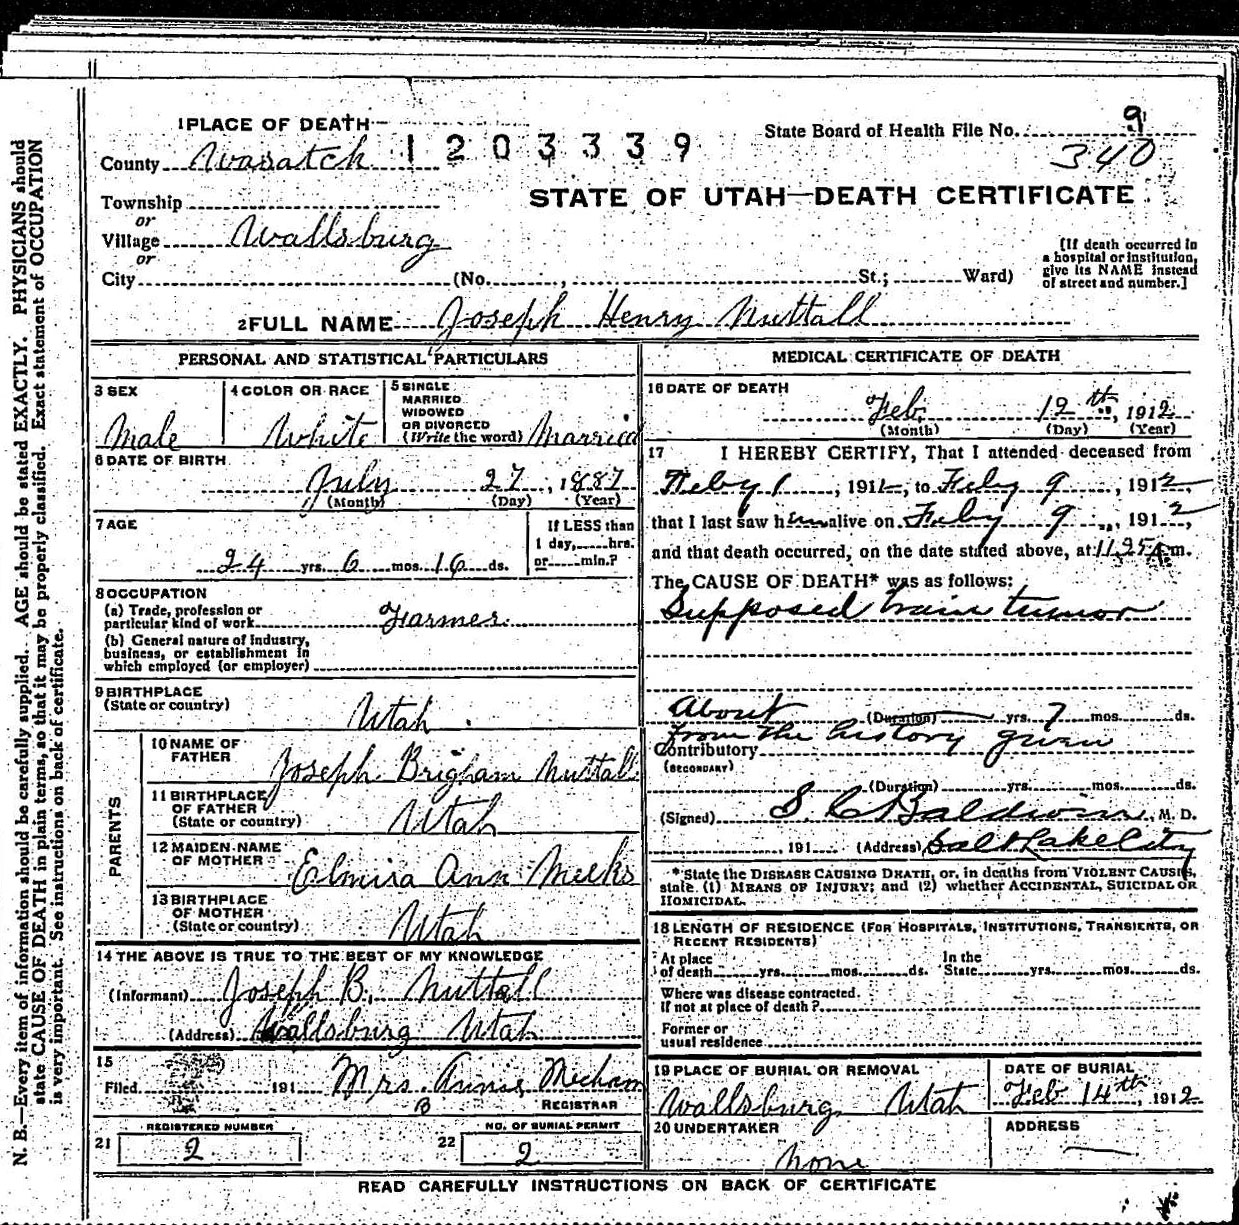 1 PLACE OF DEATH
State Board of Health File No. 9
340
County Wasatch
1203339
STATE OF UTAH—DEATH CERTIFICATE
Township
or
Village Wallsburg
or
City (No. , St.; Ward)
[If death occurred in
a hospital or institution,
give its NAME instead
of street and number.]
2 FULL NAME Joseph Henry Nuttall
PERSONAL AND STATISTICAL PARTICULARS
3 SEX
Male
4 COLOR OR RACE
White
5 SINGLE
MARRIED
WIDOWED
OR DIVORCED
(Write the word) Married
6 DATE OF BIRTH
July 27, 1887
(Month) (Day) (Year)
7 AGE
24 yrs. 6 mos. 16 ds.
If LESS than
1 day, hrs.
or min.?
8 OCCUPATION
(a) Trade, profession or
particular kind of work Farmer.
(b) General nature of Industry,
business, or establishment in
which employed (or employer)
9 BIRTHPLACE
(State or country)
Utah.
PARENTS
10 NAME OF
FATHER
Joseph Brigham Nuttall
11 BIRTHPLACE
OF FATHER
(State or country) Utah
12 MAIDEN NAME
OF MOTHER
Elmira Ann Meeks
13 BIRTHPLACE
OF MOTHER
(State or country) Utah
14 THE ABOVE IS TRUE TO THE BEST OF MY KNOWLEDGE
(Informant) Joseph B. Nuttall
(Address) Wallsburg Utah
15
Filed 191 Mrs. Annie Mecham
B REGISTRAR
REGISTERED NUMBER
21 2
NO. OF BURIAL PERMIT
22 2
MEDICAL CERTIFICATE OF DEATH
16 DATE OF DEATH
Feb. 12th, 1912
(Month) (Day) (Year)
17 I HEREBY CERTIFY, That I attended deceased from
Feby 1, 1912, to Feby 9, 1912,
that I last saw him alive on Feby 9, 1912,
and that death occurred, on the date stated above, at 11.25 A.m.
The CAUSE OF DEATH* was as follows:
Supposed brain tumor
About (Duration) yrs. 7 mos. ds.
from the history given
Contributory
(SECONDARY)
(Duration) yrs. mos. ds.
(Signed) S. C. Baldwin, M. D.
, 191 (Address) Salt Lake City
*State the DISEASE CAUSING DEATH, or, in deaths from VIOLENT CAUSES,
state (1) MEANS OF INJURY; and (2) whether ACCIDENTAL, SUICIDAL OR
HOMICIDAL.
18 LENGTH OF RESIDENCE (FOR HOSPITALS, INSTITUTIONS, TRANSIENTS, OR
RECENT RESIDENTS)
At place
of death yrs. mos. ds.
In the
State yrs. mos. ds.
Where was disease contracted.
if not at place of death?
Former or
usual residence
19 PLACE OF BURIAL OR REMOVAL
Wallsburg Utah
DATE OF BURIAL
Feb 14th, 1912
20 UNDERTAKER
none
ADDRESS
READ CAREFULLY INSTRUCTIONS ON BACK OF CERTIFICATE
N. B.—Every item of information should be carefully supplied. AGE should be stated EXACTLY. PHYSICIANS should
state CAUSE OF DEATH in plain terms, so that it may be properly classified. Exact statement of OCCUPATION
is very important. See instructions on back of certificate.